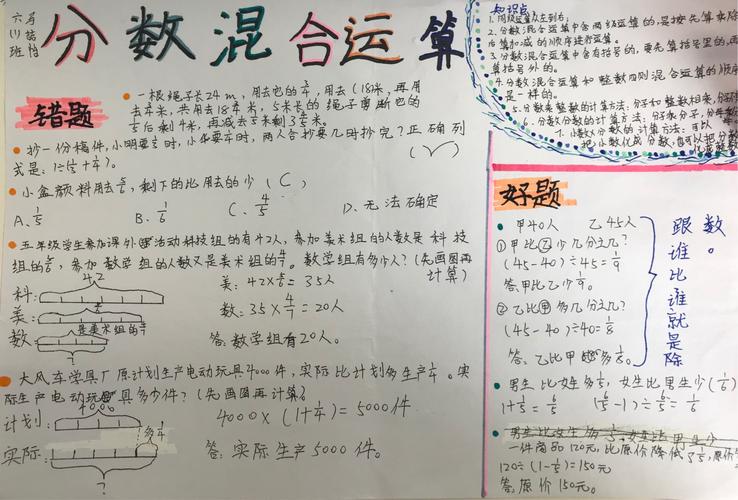 六(1)班
分数混合运算
知识点
1. 同级运算从左到右;
2. 分数混合运算中含两级运算的,是按先算乘除
后算加减的顺序进行运算。
3. 分数混合运算中含有括号的,要先算括号里的,再
算括号外的。
4. 分数混合运算和整数四则混合运算的顺序
是一样的。
5. 分数乘整数的计算方法:分子和整数相乘,分母
6. 分数乘分数的计算方法:分子乘分子,分母乘
7. 小数乘分数的计算方法:可以
把小数化成分数,也可以把分数
错题
一根绳子长24m,用去它的3/4,用去(18)米,再用
后剩4米,再减去
抄一份稿件,小明要
时,两人合抄要几小时抄完?正确列
式是:
(√)
小盒颜料用去5/6,剩下的比用去的少(C)
A、1/5 B、1/6 C、4/5 D、无法确定
五年级学生参加课外活动科技组的有42人,参加美术组的人数是科技
组的5/6,参加数学组的人数又是美术组的4/7。数学组有多少人?(先画图再
计算)
42
科:
美:
数:
是美术组的4/7
?
美:42×5/6=35人
数:35×4/7=20人
答:数学组有20人。
大风车学具厂原计划生产电动玩具4000件,实际比计划多生产1/4。实
际生产电动玩具多少件?(先画图再计算)
4000
计划:
多1/4
实际:
?
4000×(1+1/4)=5000件
答:实际生产5000件。
好题
甲40人 乙45人
①甲比乙少几分之几?
(45-40)÷45=1/9
答:甲比乙少1/9。
②乙比甲多几分之几?
(45-40)÷40=1/8
答:乙比甲多1/8。
跟谁比谁就是除数。
男生比女生多1/5,女生比男生少(1/6)
1+1/5=6/5 (6/5-1)÷6/5=1/6
一件商品120元,比原价降低了1/5,原价
120÷(1-1/5)=150元
答:原价150元。